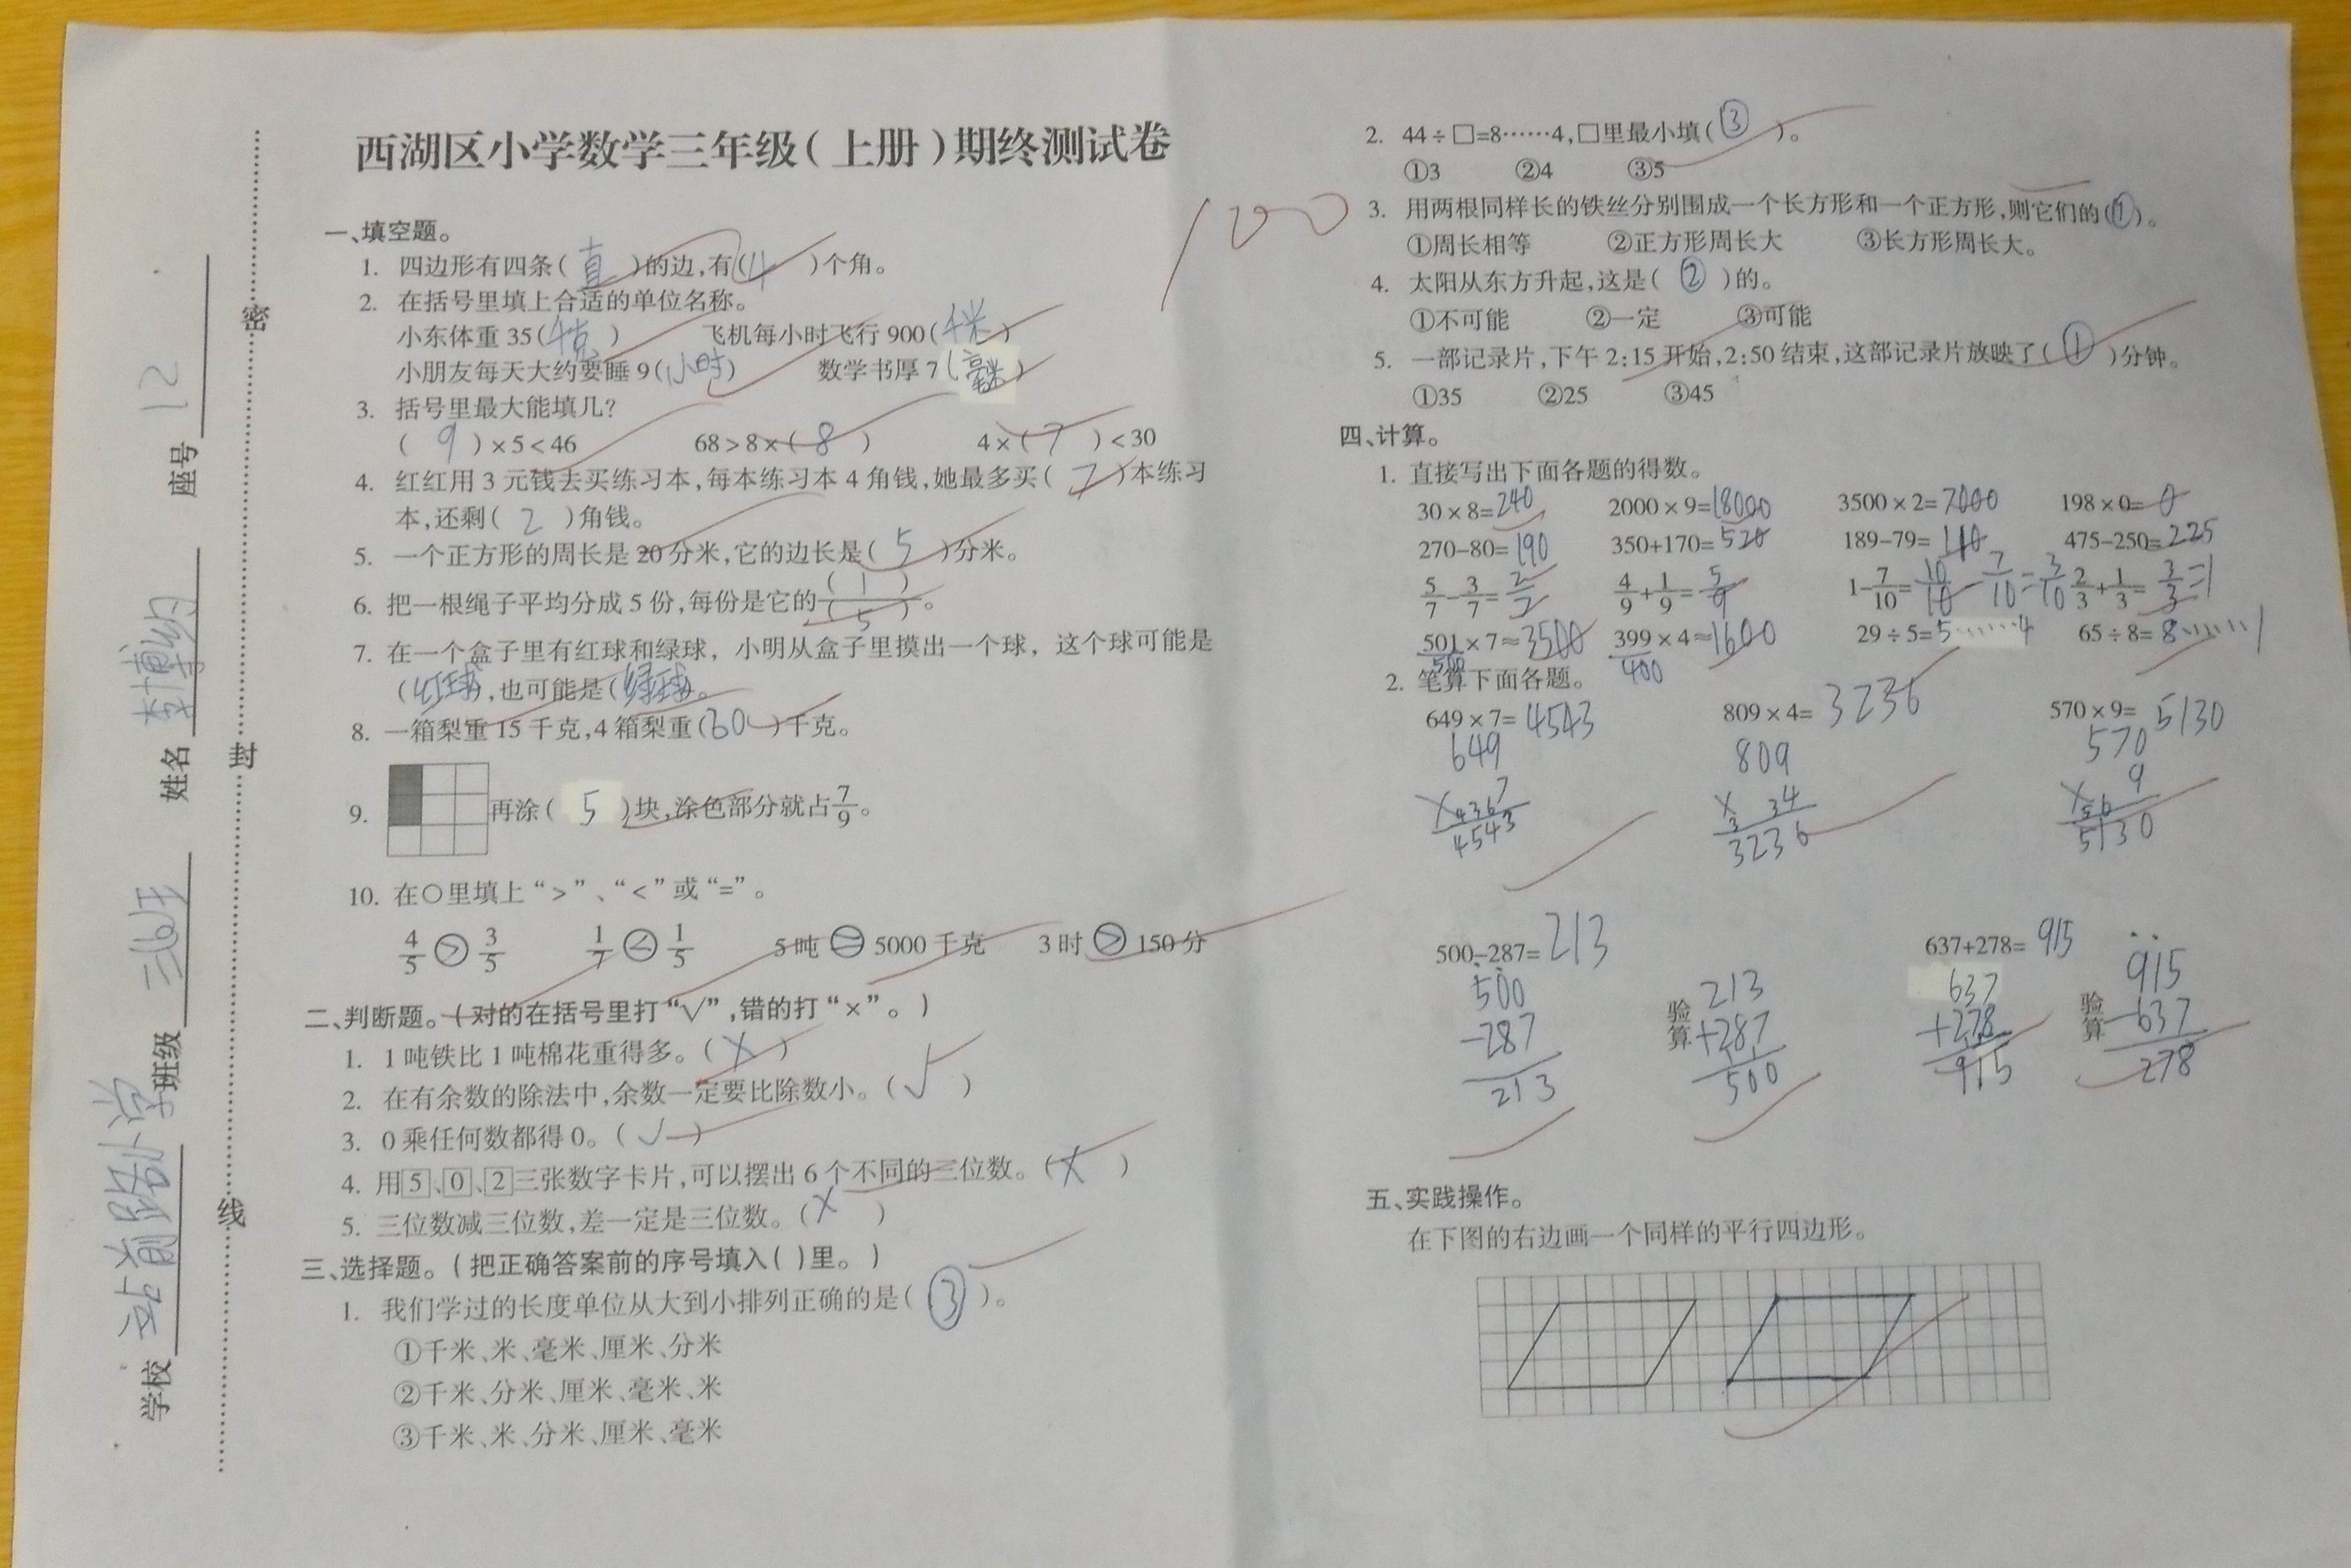 西湖区小学数学三年级(上册)期终测试卷
密
封
线
座号 12
姓名
班级
学校
100
一、填空题。
1. 四边形有四条(直)的边,有(4)个角。
2. 在括号里填上合适的单位名称。
小东体重35(千克) 飞机每小时飞行900(千米)
小朋友每天大约要睡9(小时) 数学书厚7(毫米)
3. 括号里最大能填几?
(9)×5<46 68>8×(8) 4×(7)<30
4. 红红用3元钱去买练习本,每本练习本4角钱,她最多买(7)本练习
本,还剩(2)角钱。
5. 一个正方形的周长是20分米,它的边长是(5)分米。
6. 把一根绳子平均分成5份,每份是它的(1)/(5)。
7. 在一个盒子里有红球和绿球,小明从盒子里摸出一个球,这个球可能是
(红球),也可能是(绿球)。
8. 一箱梨重15千克,4箱梨重(60)千克。
9. 再涂(5)块,涂色部分就占7/9。
10. 在○里填上“>”、“<”或“=”。
4/5 > 3/5 1/7 < 1/5 5吨 = 5000千克 3时 > 150分
二、判断题。(对的在括号里打“√”,错的打“×”。)
1. 1吨铁比1吨棉花重得多。(×)
2. 在有余数的除法中,余数一定要比除数小。(√)
3. 0乘任何数都得0。(√)
4. 用5、0、2三张数字卡片,可以摆出6个不同的三位数。(×)
5. 三位数减三位数,差一定是三位数。(×)
三、选择题。(把正确答案前的序号填入( )里。)
1. 我们学过的长度单位从大到小排列正确的是(③)。
①千米、米、毫米、厘米、分米
②千米、分米、厘米、毫米、米
③千米、米、分米、厘米、毫米
2. 44÷□=8……4,□里最小填(③)。
①3 ②4 ③5
3. 用两根同样长的铁丝分别围成一个长方形和一个正方形,则它们的(①)。
①周长相等 ②正方形周长大 ③长方形周长大。
4. 太阳从东方升起,这是(②)的。
①不可能 ②一定 ③可能
5. 一部记录片,下午2:15开始,2:50结束,这部记录片放映了(①)分钟。
①35 ②25 ③45
四、计算。
1. 直接写出下面各题的得数。
30×8=240 2000×9=18000 3500×2=7000 198×0=0
270-80=190 350+170=520 189-79=110 475-250=225
5/7-3/7=2/7 4/9+1/9=5/9 1-7/10=10/10-7/10=3/10 2/3+1/3=3/3=1
501×7≈3500 399×4≈1600 29÷5=5……4 65÷8=8……1
500 400
2. 笔算下面各题。
649×7=4543 809×4=3236 570×9=5130
649 809 570
×4367 ×334 ×9
4543 3236 56
5130
500-287=213 637+278=915
500 验算 213 637 验算 915
-287 +287 +278 -637
213 500 915 278
五、实践操作。
在下图的右边画一个同样的平行四边形。